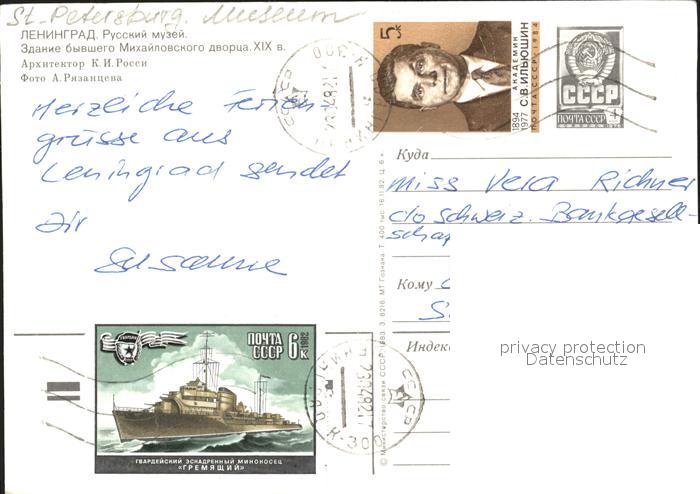 St. Petersburg. Museum
ЛЕНИНГРАД. Русский музей.
Здание бывшего Михайловского дворца. XIX в.
Архитектор К. И. Росси
Фото А. Рязанцева
Herzliche Ferien-
grüsse aus
Leningrad sendet
Dir
Susanne
5 к
АКАДЕМИК
С.В.ИЛЬЮШИН
1894
1977
ПОЧТА СССР • 1984
СССР
ПОЧТА СССР
Куда
Miss Vera Richner
c/o Schweiz. Bankgesell-
schaf
Кому
Индекс
privacy protection
Datenschutz
ПОЧТА
СССР
6 к
1982
ГВАРДЕЙСКИЙ ЭСКАДРЕННЫЙ МИНОНОСЕЦ
«ГРЕМЯЩИЙ»
© Министерство связи СССР. 1983 З. 8216. МТ Гознака. Т. 400 тыс. 16.11.82 Ц. 6 к.